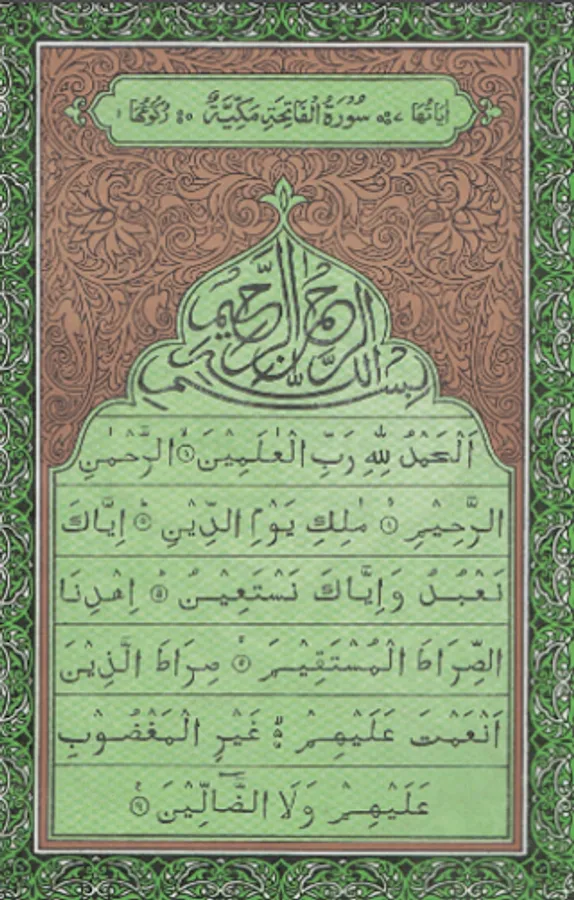 اٰيَاتُهَا ٧ سُوْرَةُ الْفَاتِحَةِ مَكِّيَّةٌ ٥ رُكُوْعُهَا ١
بِسْمِ اللّٰهِ الرَّحْمٰنِ الرَّحِيْمِ
اَلْحَمْدُ لِلّٰهِ رَبِّ الْعٰلَمِيْنَ ۙ﴿١﴾ الرَّحْمٰنِ
الرَّحِيْمِ ۙ﴿٢﴾ مٰلِكِ يَوْمِ الدِّيْنِ ؕ﴿٣﴾ اِيَّاكَ
نَعْبُدُ وَاِيَّاكَ نَسْتَعِيْنُ ؕ﴿٤﴾ اِهْدِنَا
الصِّرَاطَ الْمُسْتَقِيْمَ ۙ﴿٥﴾ صِرَاطَ الَّذِيْنَ
اَنْعَمْتَ عَلَيْهِمْ ۙ۬ غَيْرِ الْمَغْضُوْبِ
عَلَيْهِمْ وَلَا الضَّآلِّيْنَ ﴿٧﴾